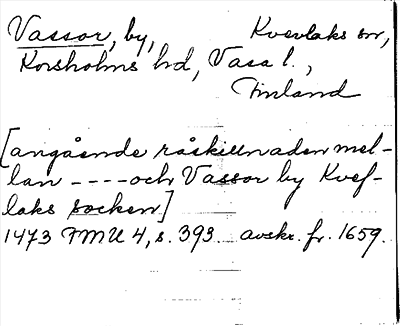 Vassor, by, Kvevlaks sn,
Korsholms hd, Vasa l.,
Finland
[angående råskillnaden mel-
lan ----och Vassor by Kvef-
laks socken]
1473 FMU 4, s. 393 avskr. fr. 1659.